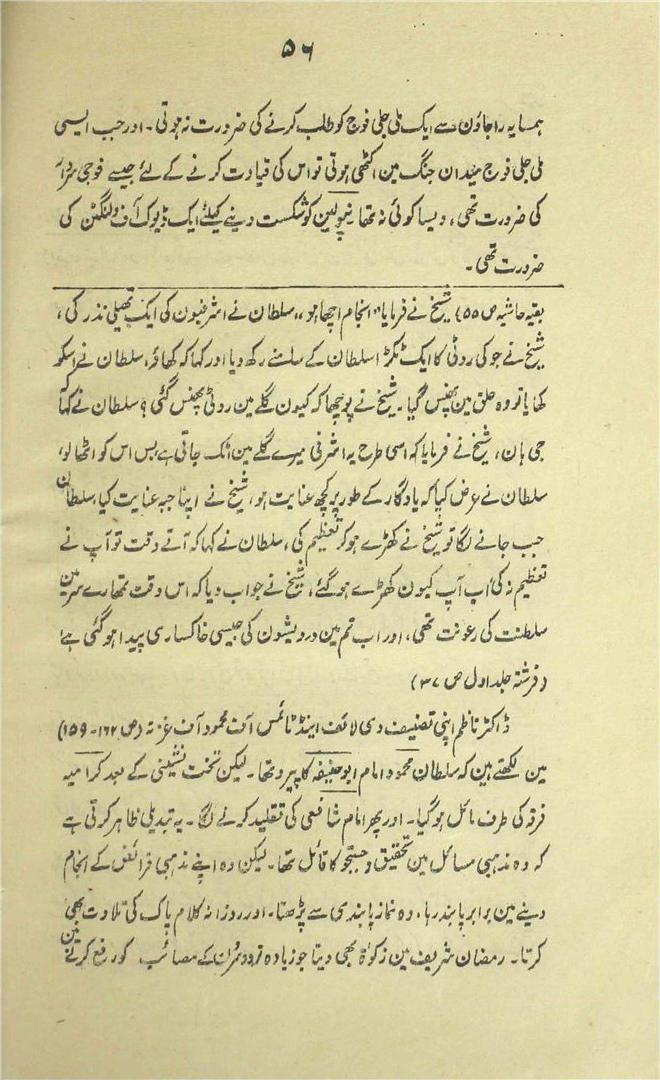 ۵۶
ہمسایہ راجاؤن سے ایک ملی جلی فوج کو طلب کرنے کی ضرورت نہ ہوتی۔ اور جب ایسی
ملی جلی فوج میدان جنگ مین اکٹھی ہوتی تو اس کی قیادت کرنے کے لئے جیسے فوجی سردار
کی ضرورت تھی، ویسا کوئی نہ تھا نپولین کو شکست دینے کیلئے ایک ڈیوک آف ولنگٹن کی
ضرورت تھی۔
بقیہ حاشیہ ص ۵۵) شیخ نے فرمایا "انجام اچھا ہو" سلطان نے اشرفیون کی ایک تھیلی نذر کی،
شیخ نے جو کی روٹی کا ایک ٹکڑا سلطان کے سامنے رکھ دیا اور کہا کہ کھاؤ، سلطان نے اسکو
کھایا تو وہ حلق مین پھنس گیا۔ شیخ نے پوچھا کہ کیون گلے مین روٹی پھنس گئی؟ سلطان نے کہا کہ
جی ہان، شیخ نے فرمایا کہ اسی طرح یہ اشرفی میرے گلے مین اٹک جاتی ہے بس اس کو اٹھا لو،
سلطان نے عرض کیا کہ یادگار کے طور پر کچھ عنایت ہو، شیخ نے اپنا جبہ عنایت کیا، سلطان
جب جانے لگا تو شیخ نے کھڑے ہو کر تعظیم کی، سلطان نے کہا کہ آتے وقت تو آپ نے
تعظیم نہ کی اب آپ کیون کھڑے ہو گئے، شیخ نے جواب دیا کہ اس وقت تمھارے سر مین
سلطنت کی رعونت تھی، اور اب تم مین درویشون کی جیسی خاکساری پیدا ہو گئی ہے
(فرشتہ جلد اول ص ۳۷)
ڈاکٹر ناظم اپنی تصنیف دی لائف اینڈ ٹائمس آف محمود آف غزنہ (ص ۱۶۲-۱۵۹)
مین لکھتے ہین کہ سلطان محمود امام ابو حنیفہ کا پیرو تھا۔ لیکن تخت نشینی کے بعد کرامیہ
فرقہ کی طرف مائل ہو گیا۔ اور پھر امام شافعی کی تقلید کرنے لگا۔ یہ تبدیلی ظاہر کرتی ہے
کہ وہ مذہبی مسائل مین تحقیق و جستجو کا قائل تھا۔ لیکن وہ اپنے مذہبی فرائض کے انجام
دینے مین برابر پابند رہا، وہ نماز پابندی سے پڑھتا۔ اور روزانہ کلام پاک کی تلاوت بھی
کرتا۔ رمضان شریف مین زکوٰۃ بھی دیتا جو زیادہ تر دوسرون کے مصائب کو رفع کرنے مین